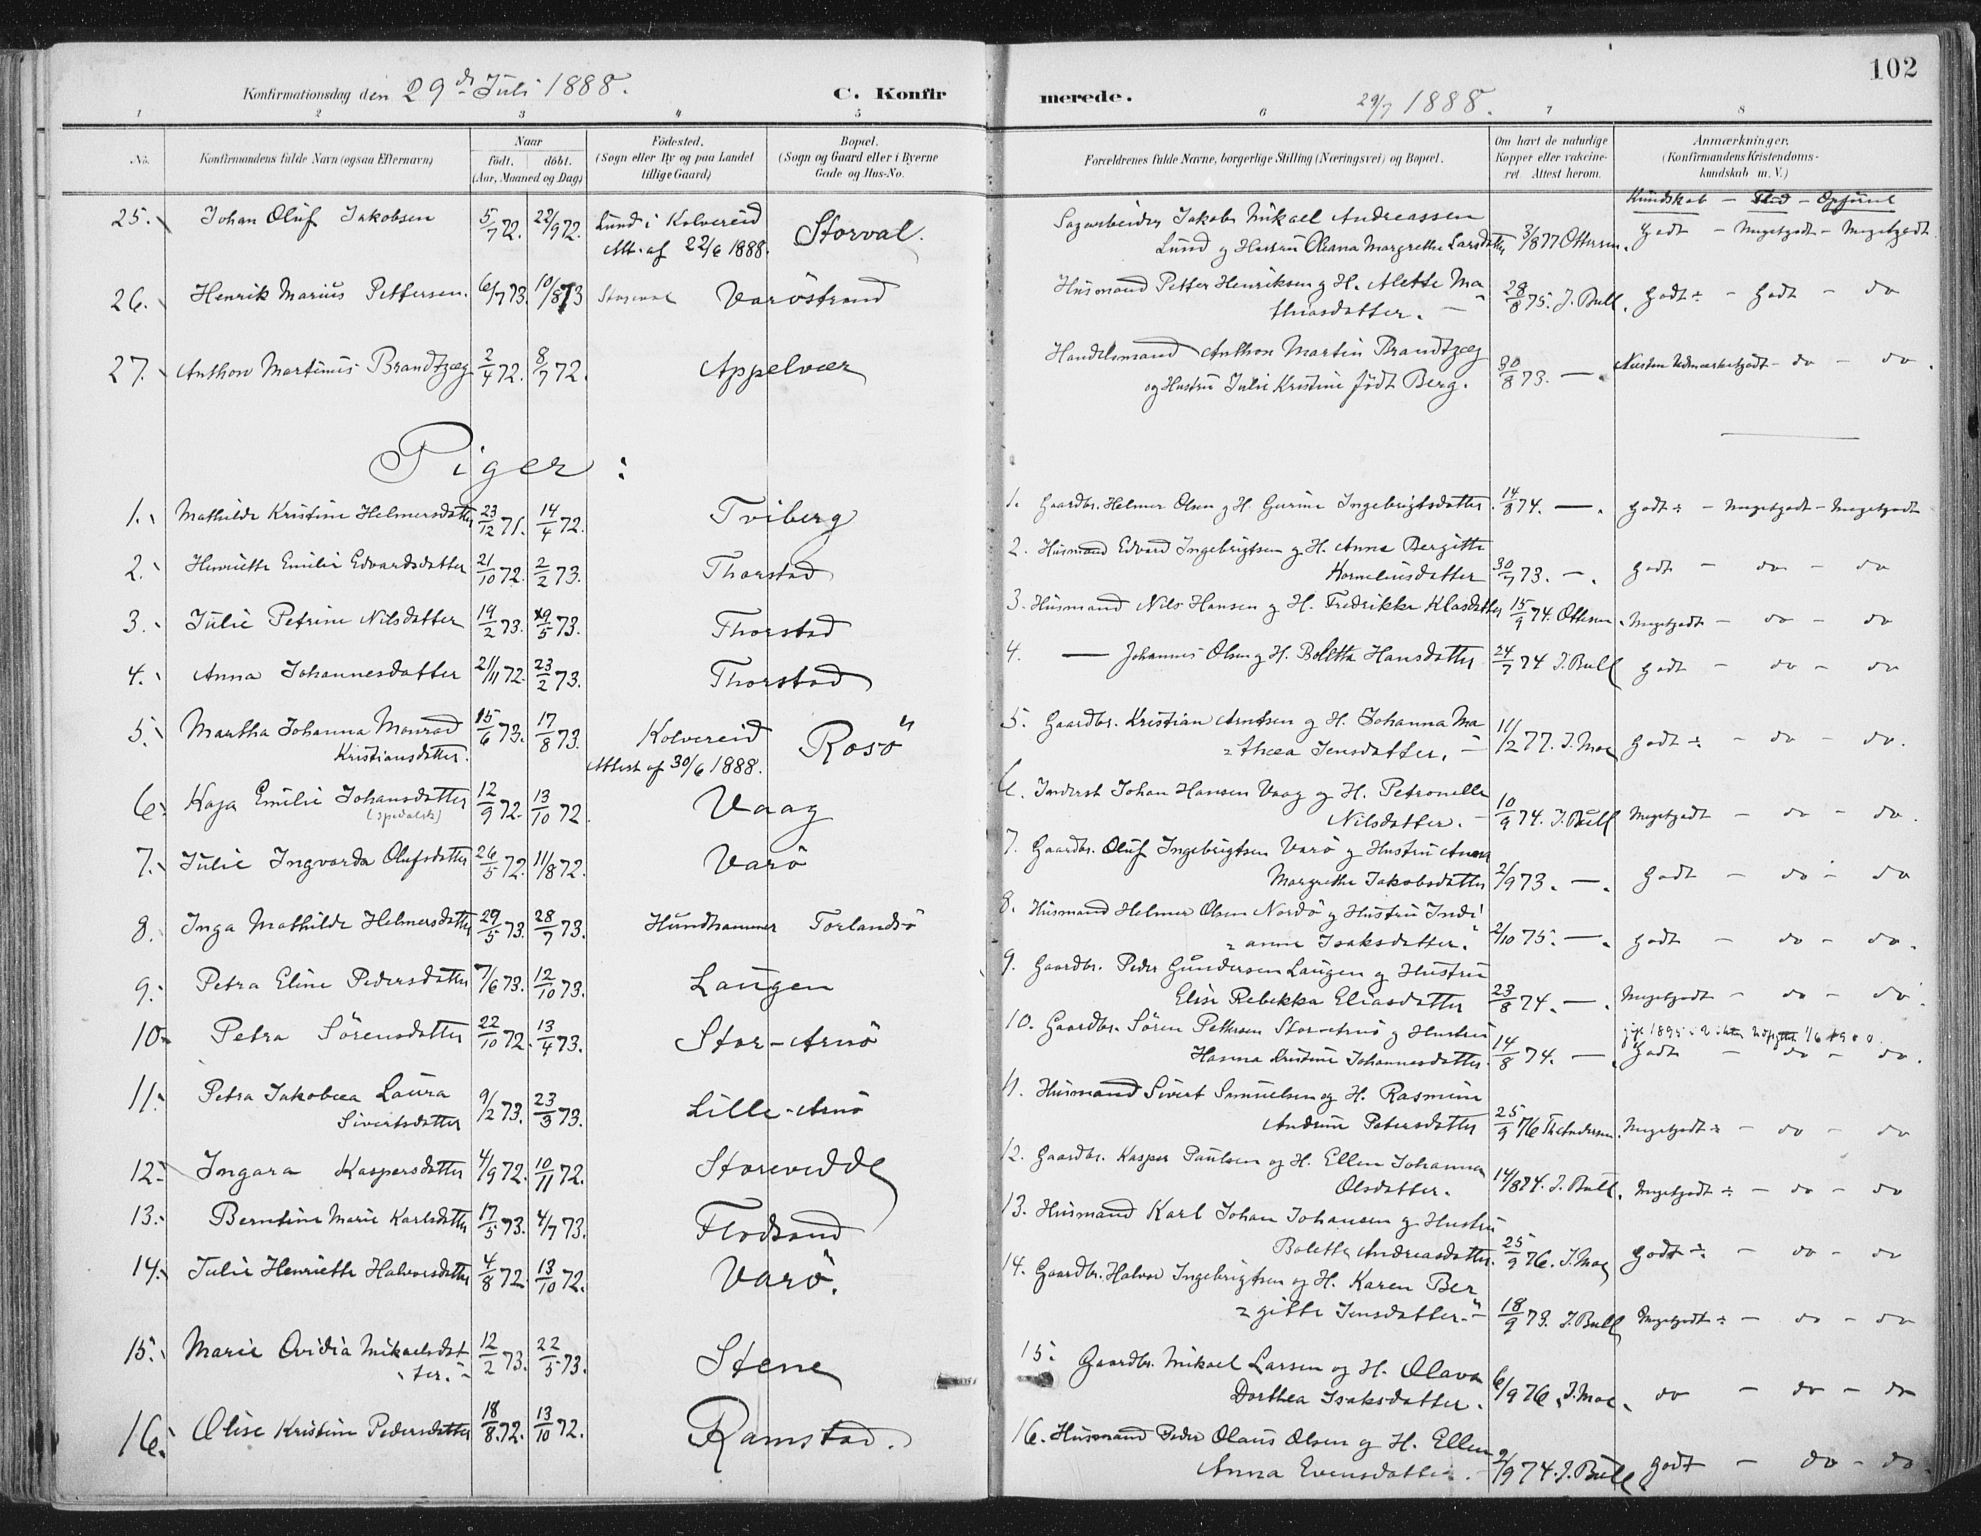 102
Konfirmationsdag den 29de Juli 1888. C. Konfirmerede. 29/7 1888.
1 2 3 4 5 6 7 8
No. Konfirmandens fulde Navn (ogsaa Efternavn) Naar födt. döbt. (Aar, Maaned og Dag) Födested. (Sogn eller By og paa Landet tillige Gaard) Bopæl. (Sogn og Gaard eller i Byerne Gade og Hus-No. Forældrenes fulde Navne, borgerlige Stilling (Næringsvei) og Bopæl. Om havt de naturlige Kopper eller vakcineret. Attest herom. Anmærkninger. (Konfirmandens Kristendomskundskab m. V.)
Kundskab — Flid — Opförsel
25. Johan Oluf Jakobsen 5/7 72. 22/9 72. Lund i Kolvereid Att. af 22/6 1888. Storval. Sagarbeider Jakob Mikael Andreassen
Lund og Hustru Oliana Margrethe Larsdatter 3/8 77 Ottersen. Godt — Megetgodt — Megetgodt
26. Henrik Marius Pettersen. 6/7 73. 10/8 73 Storval Varöstrand Husmand Petter Henriksen og H. Alette Ma
thiasdatter. — 28/8 75. J. Bull. Godt ÷ — Godt — do
27. Anthon Martinus Brandtzæg 2/4 72. 8/7 72. Appelvær Handelsmand Anthon Martin Brandtzæg
og Hustru Julie Kristine födt Berg. 30/8 73. — . Næsten Udmærketgodt — do — do.
Piger:
1. Mathilde Kristine Helmersdatter 23/12 71. 14/4 72. Tviberg 1. Gaardbr. Helmer Olsen og H. Gurine Ingebrigtsdatter. 14/8 74. — . Godt ÷ — Megetgodt — Megetgodt
2. Henriette Emilie Edvardsdatter 21/10 72. 2/2 73. Thorstad 2. Husmand Edvard Ingebrigtsen og H. Anna Bergitte
Korneliusdatter 30/7 73. — . Godt — do — do
3. Julie Petrine Nilsdatter 19/2 73. 29/5 73. Thorstad 3. Husmand Nils Hansen og H. Fredrikke Klasdatter 15/9 74. Ottersen. Megetgodt — do — do
4. Anna Johannesdatter 21/11 72. 23/2 73. Thorstad 4. — Johannes Olsen og H. Boletta Hansdatter. 24/7 74 J. Bull Godt — do — do
5. Martha Johanna Monrad Kristiansdatter. 15/6 73. 17/8 73. Kolvereid Attest af 30/6 1888. Rosö 5. Gaardbr. Kristian Arntsen og H. Johanna Ma
thea Jensdatter. — 11/2 77. J. Moe Godt ÷ — do — do.
6. Kaja Emilie Johansdatter (spedalsk) 12/9 72. 13/10 72. Vaag 6. Inderst Johan Hansen Vaag og H. Petronelle
Nilsdatter. — 10/9 74. J. Bull Megetgodt — do — do.
7. Julie Ingvarda Olufsdatter 26/5 72. 11/8 72. Varö 7. Gaardbr. Oluf Ingebrigtsen Varö og Hustru Anna
Margrethe Jakobsdatter 2/9 73. — . Godt — do — do
8. Inga Mathilde Helmersdatter 29/5 73. 28/7 73. Hundhammer Torlandsö 8. Husmand Helmer Olsen Nordö og Hustru Indi
anne Isaksdatter. 2/10 75. — . Godt — do — do.
9. Petra Eline Pedersdatter 7/6 73. 12/10 73. Laugen 9. Gaardbr. Peder Gundersen Laugen og Hustru
Elise Rebekka Eliasdatter 23/8 74. — . Megetgodt — do — do.
10. Petra Sörensdatter 22/10 72. 13/4 73. Stor-Arnö 10. Gaardbr. Sören Pettersen Stor-Arnö og Hustru
Hanna Kristine Johannesdatter. 14/8 74. — . Godt — do — do.
11. Petra Jakobæa Laura Sivertsdatter 9/2 73. 23/3 73. Lille-Arnö 11. Husmand Sivert Samuelsen og H. Rasmine
Andrine Petersdatter 25/9 76 Th. Andersen. Megetgodt ÷ — do — do
12. Ingara Kaspersdatter 4/9 72. 10/11 72. Storevedde 12. Gaardbr. Kasper Paulsen og H. Ellen Johanna
Olsdatter. 14/8 74. J. Bull. Megetgodt ÷ — do — do
13. Berntine Marie Karlsdatter 17/5 73. 4/7 73. Flodsand 13. Husmand Karl Johan Johansen og Hustru
Bolette Andreasdatter. 25/9 76. J. Moe Godt ÷ — do — do
14. Julie Henriette Halvorsdatter 4/8 72. 13/10 72. Varö. 14. Gaardbr. Halvor Ingebrigtsen og H. Karen Ber
gitte Jensdatter. — 18/9 73. J. Bull Megetgodt ÷ — do — do
15. Marie Ovidia Mikaelsdatter. 12/2 73. 22/5 73. Stene 15. Gaardbr. Mikael Larsen og H. Olava
Dorthea Isaksdatter. 6/9 76. J. Moe. do — do — do
16. Olise Kristine Pedersdatter 18/8 72. 13/10 72. Ramstad. 16. Husmand Peder Olaus Olsen og H. Ellen
Anna Evensdatter. — 2/9 74. J. Bull. Godt — do — do.